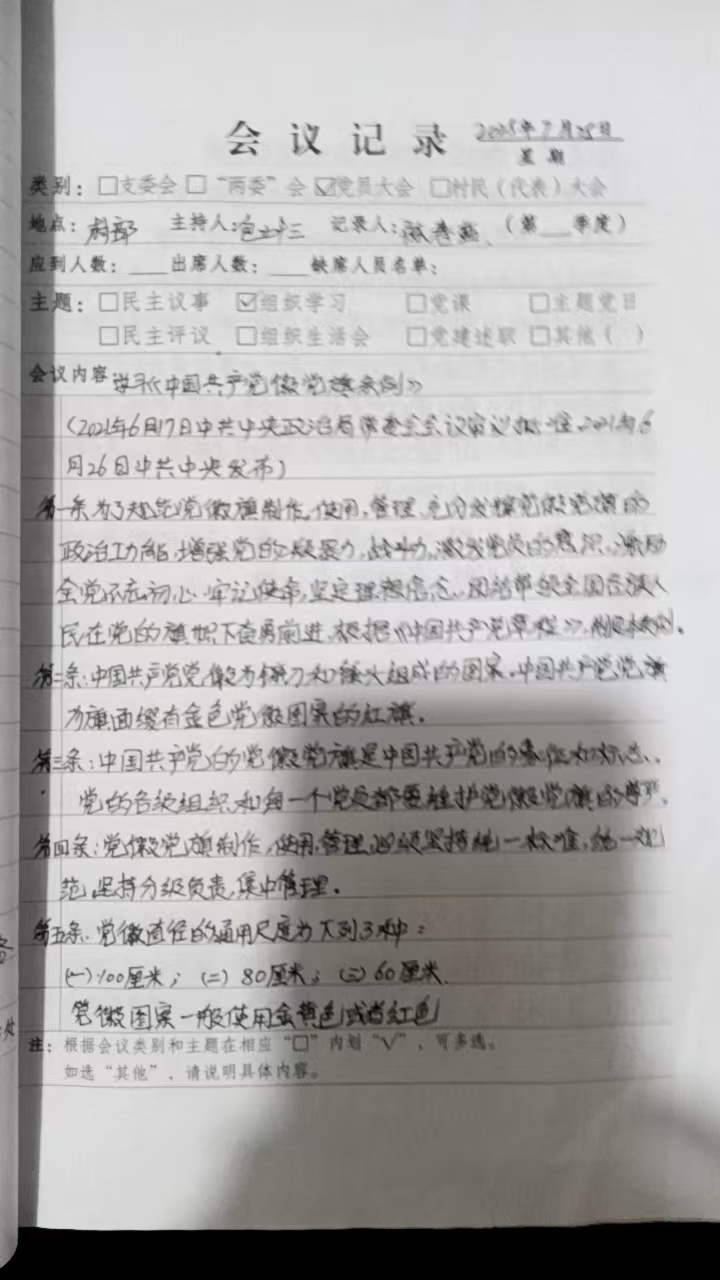 会议记录 2025年7月25日
星期
类别：☐支委会 ☐“两委”会 ☑党员大会 ☐村民（代表）大会
地点：村部 主持人： 记录人： （第__季度）
应到人数：____出席人数：____缺席人员名单：
主题：☐民主议事 ☑组织学习 ☐党课 ☐主题党日
☐民主评议 ☐组织生活会 ☐党建述职 ☐其他（ ）
会议内容 学习《中国共产党徽党旗条例》
（2021年6月17日中共中央政治局常委会会议审议批准2021年6
月26日中共中央发布）
第一条为了规范党徽旗制作,使用,管理,充分发挥党徽党旗的
政治功能,增强党的凝聚力,战斗力,激发党员的意识,激励
全党不忘初心 牢记使命,坚定理想信念,团结带领全国各族人
民在党的旗帜下奋勇前进,根据《中国共产党章程》,制定本条例.
第二条:中国共产党党徽为镰刀和锤头组成的图案.中国共产党党旗
为旗面缀有金色党徽图案的红旗.
第三条:中国共产党的党徽党旗是中国共产党的象征和标志、.
党的各级组织和每一个党员都要维护党徽党旗的尊严.
第四条:党徽党旗制作,使用,管理,坚持统一标准,统一规
范,坚持分级负责,集中管理.
第五条.党徽直径的通用尺度为下列3种:
(一)100厘米; (二)80厘米; (三)60厘米.
党徽图案一般使用金黄色或者红色
注：根据会议类别和主题在相应“☐”内划“√”，可多选。
如选“其他”，请说明具体内容。